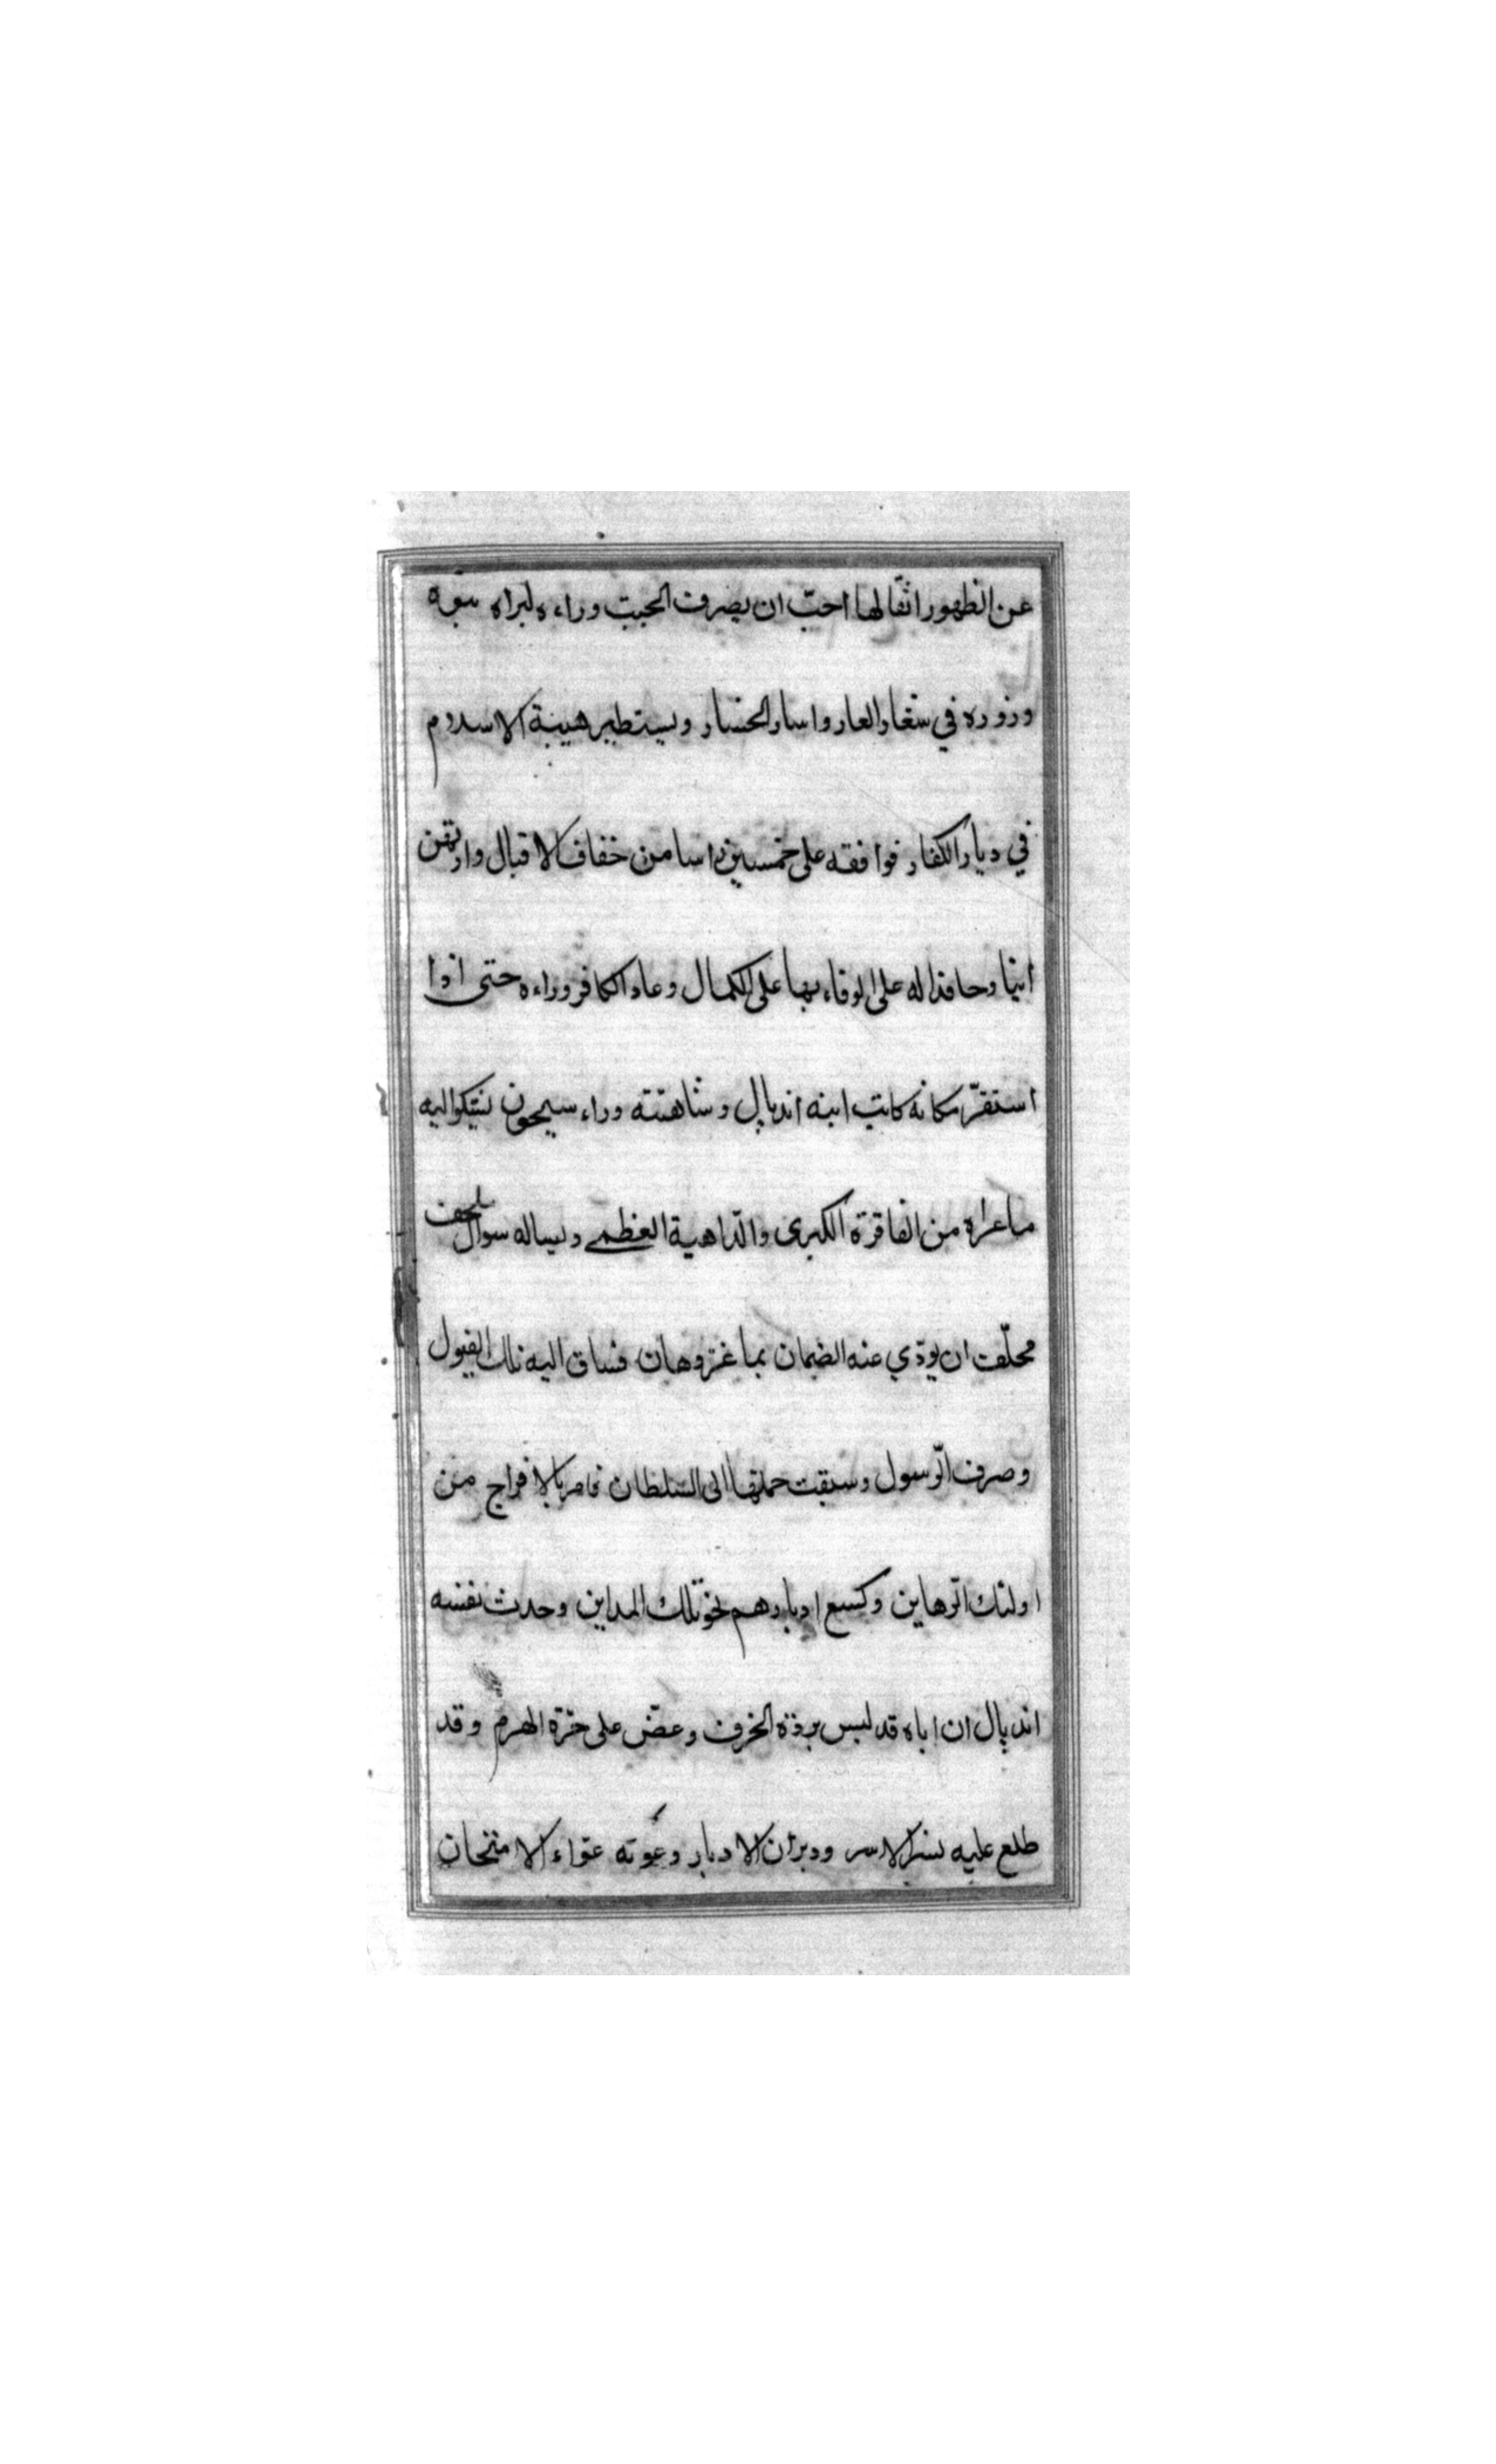 عن الظهور اثقالها احبّ ان يصرف الخبيث وراءه ليراه بنوه
وذووه في شعار العار واسار الخسار ويستطير هيبة الاسلام
في ديار الكفار فوافقه على خمسين راسا من خفاف الاقبال وارتهن
ابنا وحافدا له على الوفاء بها على الكمال وعاد الكافر وراءه حتى اذا
استقرّ مكانه كاتب ابنه اندپال وشاهيته وراء سيحون يشكو اليه
ما عراه من الفاقرة الكبرى والدّاهية العظمى ويساله سوال ملحف
محلّف ان يودّي عنه الضمان بما عز وهان فساق اليه تلك الفيول
وصرف الرّسول وسيقت جملتها الى السّلطان فامر بالافراج عن
اولئك الرّهاين وكسع ادبارهم نحو تلك المداين وحدث نفسه
اندپال ان اباه قد لبس بردة الخرف وعضّ على جرّة الهرم وقد
طلع عليه نسر الاسر ودبران الادبار وعوته عواء الامتحان